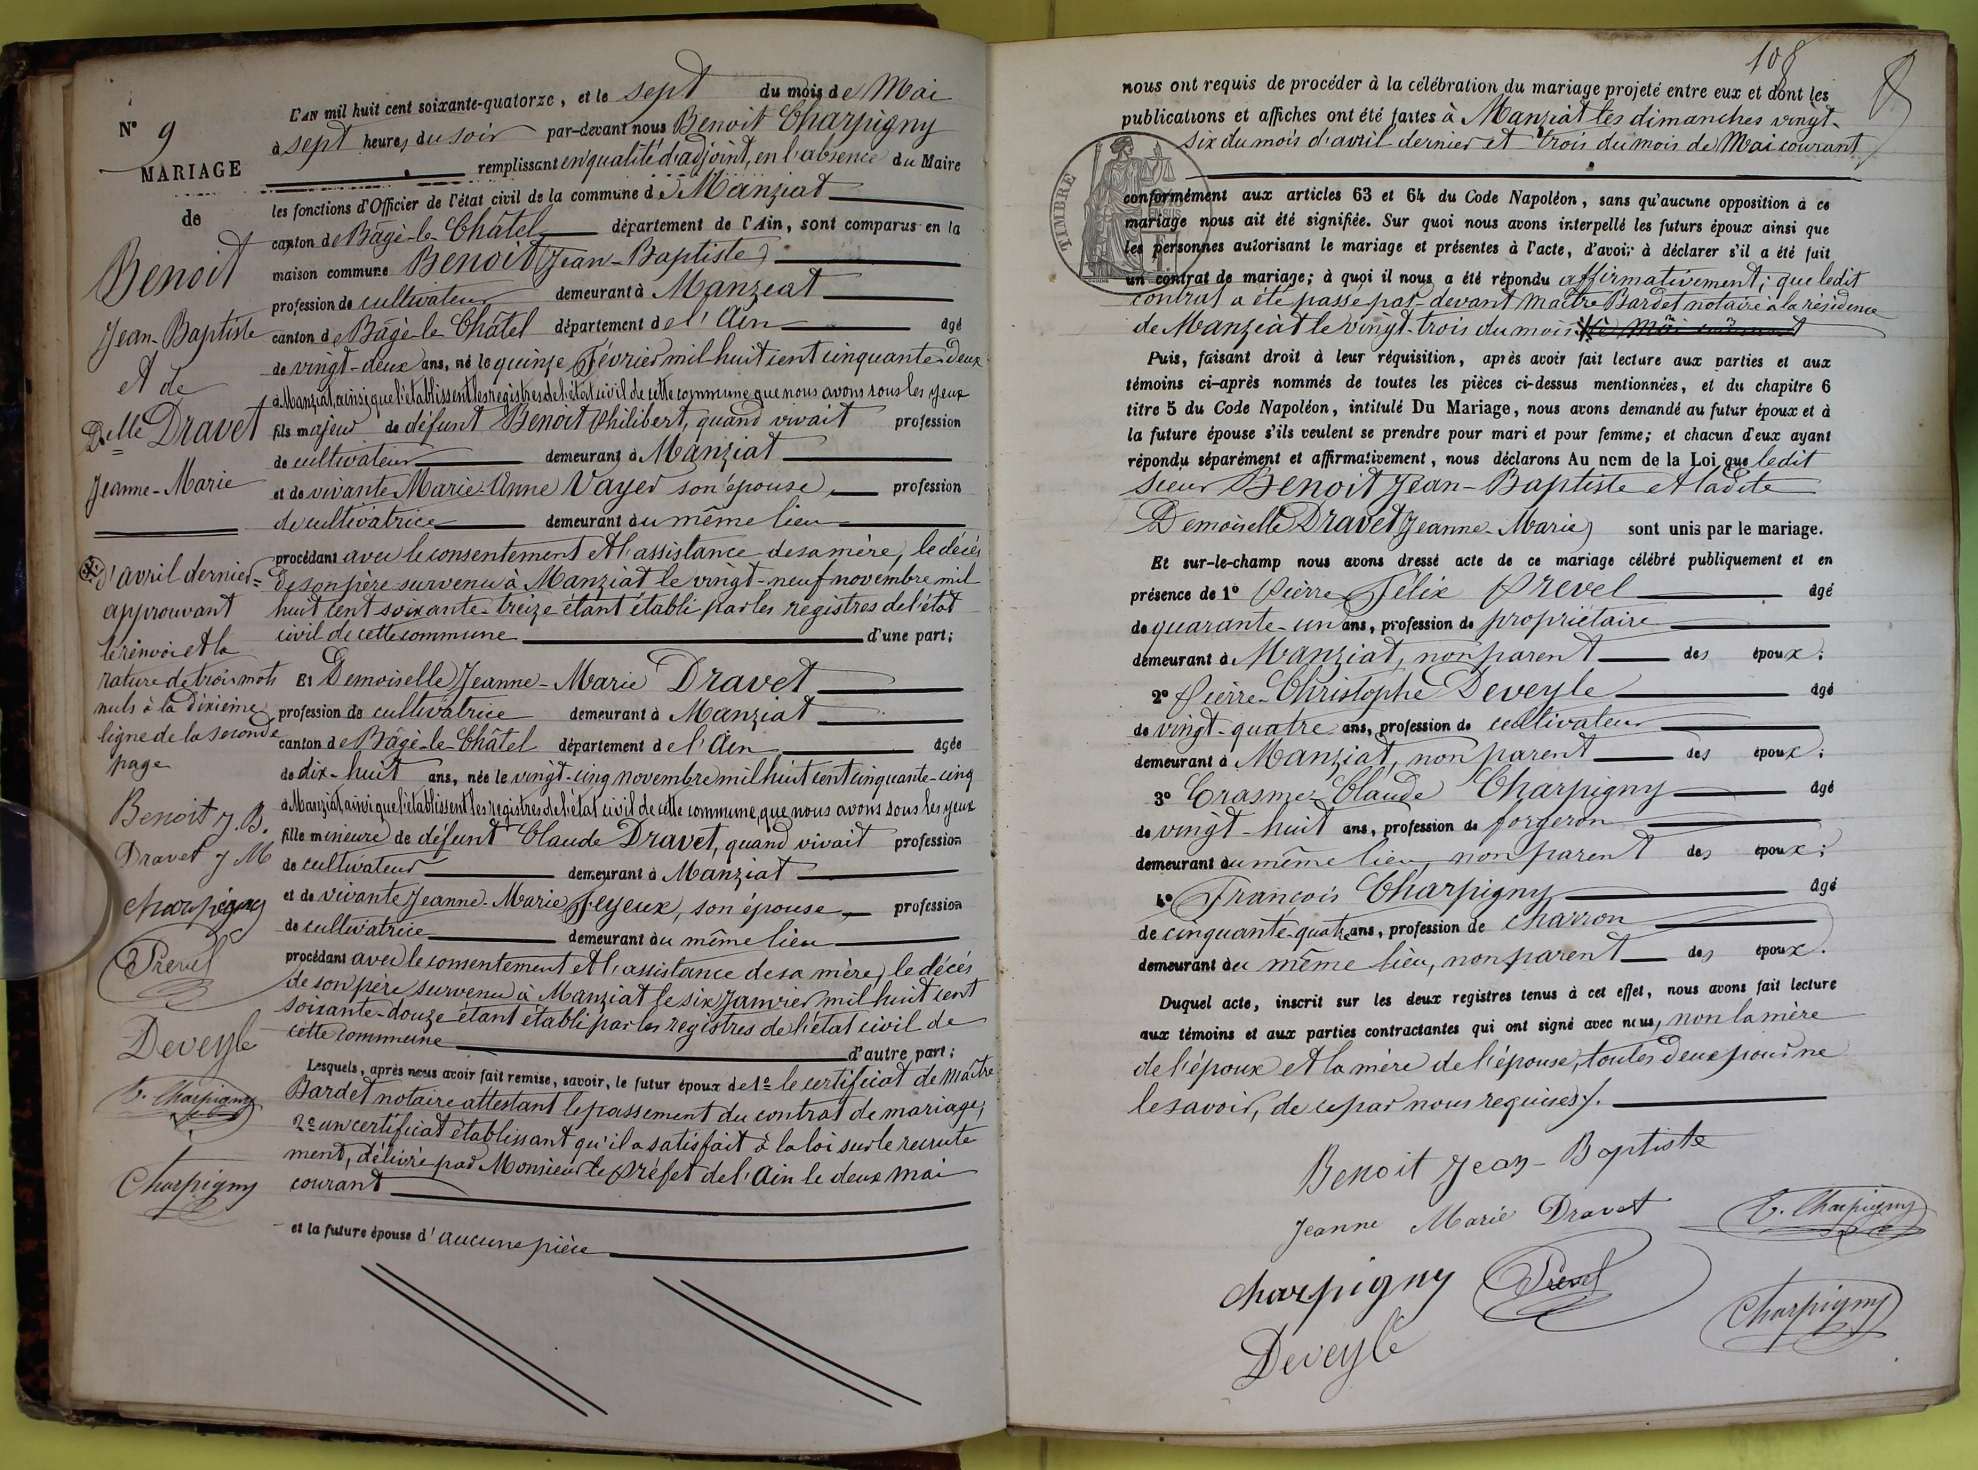 N° 9
MARIAGE
de
Benoit
Jean-Baptiste
et de
Delle Dravet
Jeanne-Marie
d'avril dernier=
approuvant
le renvoi et la
rature de trois mots
nuls à la dixième
ligne de la seconde
page
Benoit J. B.
Dravet J M
Charpigny
Prevel
Deveyle
Charpigny
Charpigny
L'AN mil huit cent soixante-quatorze, et le sept du mois de Mai
à sept heures du soir par-devant nous Benoit Charpigny
remplissant en qualité d'adjoint, en l'absence du Maire
les fonctions d'Officier de l'état civil de la commune de Manziat
canton de Bâgé-le-Châtel département de l'Ain, sont comparus en la
maison commune Benoit (Jean-Baptiste)
profession de cultivateur demeurant à Manziat
canton de Bâgé-le-Châtel département de l'Ain âgé
de vingt-deux ans, né le quinze Février mil huit cent cinquante-deux
à Manziat, ainsi que l'établissent les registres de l'état civil de cette commune que nous avons sous les yeux
fils majeur de défunt Benoit Philibert, quand vivait profession
de cultivateur demeurant à Manziat
et de vivante Marie-Anne Vayer son épouse, profession
de cultivatrice demeurant au même lieu
procédant avec le consentement et l'assistance de sa mère, le décès
de son père survenu à Manziat le vingt-neuf novembre mil
huit cent soixante-treize étant établi par les registres de l'état
civil de cette commune d'une part;
Et Demoiselle Jeanne-Marie Dravet
profession de cultivatrice demeurant à Manziat
canton de Bâgé-le-Châtel département de l'Ain âgée
de dix-huit ans, née le vingt-cinq novembre mil huit cent cinquante-cinq
à Manziat ainsi que l'établissent les registres de l'état civil de cette commune, que nous avons sous les yeux
fille mineure de défunt Claude Dravet, quand vivait profession
de cultivateur demeurant à Manziat
et de vivante Jeanne-Marie Feyeux, son épouse, profession
de cultivatrice demeurant au même lieu
procédant avec le consentement et l'assistance de sa mère, le décès
de son père survenu à Manziat le six Janvier mil huit cent
soixante-douze étant établi par les registres de l'état civil de
cette commune d'autre part;
Lesquels, après nous avoir fait remise, savoir, le futur époux de 1° le certificat de Maître
Bardet notaire attestant le passement du contrat de mariage;
2° un certificat établissant qu'il a satisfait à la loi sur le recrute
ment, délivré par Monsieur le Préfet de l'Ain le deux mai
courant
et la future épouse d'aucune pièce
108
nous ont requis de procéder à la célébration du mariage projeté entre eux et dont les
publications et affiches ont été faites à Manziat les dimanches vingt-
six du mois d'avril dernier et trois du mois de Mai courant,
TIMBRE
conformément aux articles 63 et 64 du Code Napoléon, sans qu'aucune opposition à ce
mariage nous ait été signifiée. Sur quoi nous avons interpellé les futurs époux ainsi que
les personnes autorisant le mariage et présentes à l'acte, d'avoir à déclarer s'il a été fait
un contrat de mariage; à quoi il nous a été répondu affirmativement; que ledit
contrat a été passé par devant Maître Bardet notaire à la résidence
de Manziat le vingt-trois du mois
Puis, faisant droit à leur réquisition, après avoir fait lecture aux parties et aux
témoins ci-après nommés de toutes les pièces ci-dessus mentionnées, et du chapitre 6
titre 5 du Code Napoléon, intitulé Du Mariage, nous avons demandé au futur époux et à
la future épouse s'ils veulent se prendre pour mari et pour femme; et chacun d'eux ayant
répondu séparément et affirmativement, nous déclarons Au nom de la Loi que ledit
sieur Benoit Jean-Baptiste et ladite
Demoiselle Dravet (Jeanne-Marie) sont unis par le mariage.
Et sur-le-champ nous avons dressé acte de ce mariage célébré publiquement et en
présence de 1° Pierre Félix Prevel âgé
de quarante-un ans, profession de propriétaire
demeurant à Manziat, non parent des époux;
2° Pierre-Christophe Deveyle âgé
de vingt-quatre ans, profession de cultivateur
demeurant à Manziat, non parent des époux;
3° Erasme-Claude Charpigny âgé
de vingt-huit ans, profession de forgeron
demeurant au même lieu, non parent des époux;
4° François Charpigny âgé
de cinquante-quatre ans, profession de charron
demeurant au même lieu, non parent des époux.
Duquel acte, inscrit sur les deux registres tenus à cet effet, nous avons fait lecture
aux témoins et aux parties contractantes qui ont signé avec nous, non la mère
de l'époux et la mère de l'épouse, toutes deux pour ne
le savoir, de ce par nous requises.
Benoit Jean-Baptiste
Jeanne Marie Dravet
Charpigny
Charpigny
Prevel
Charpigny
Deveyle